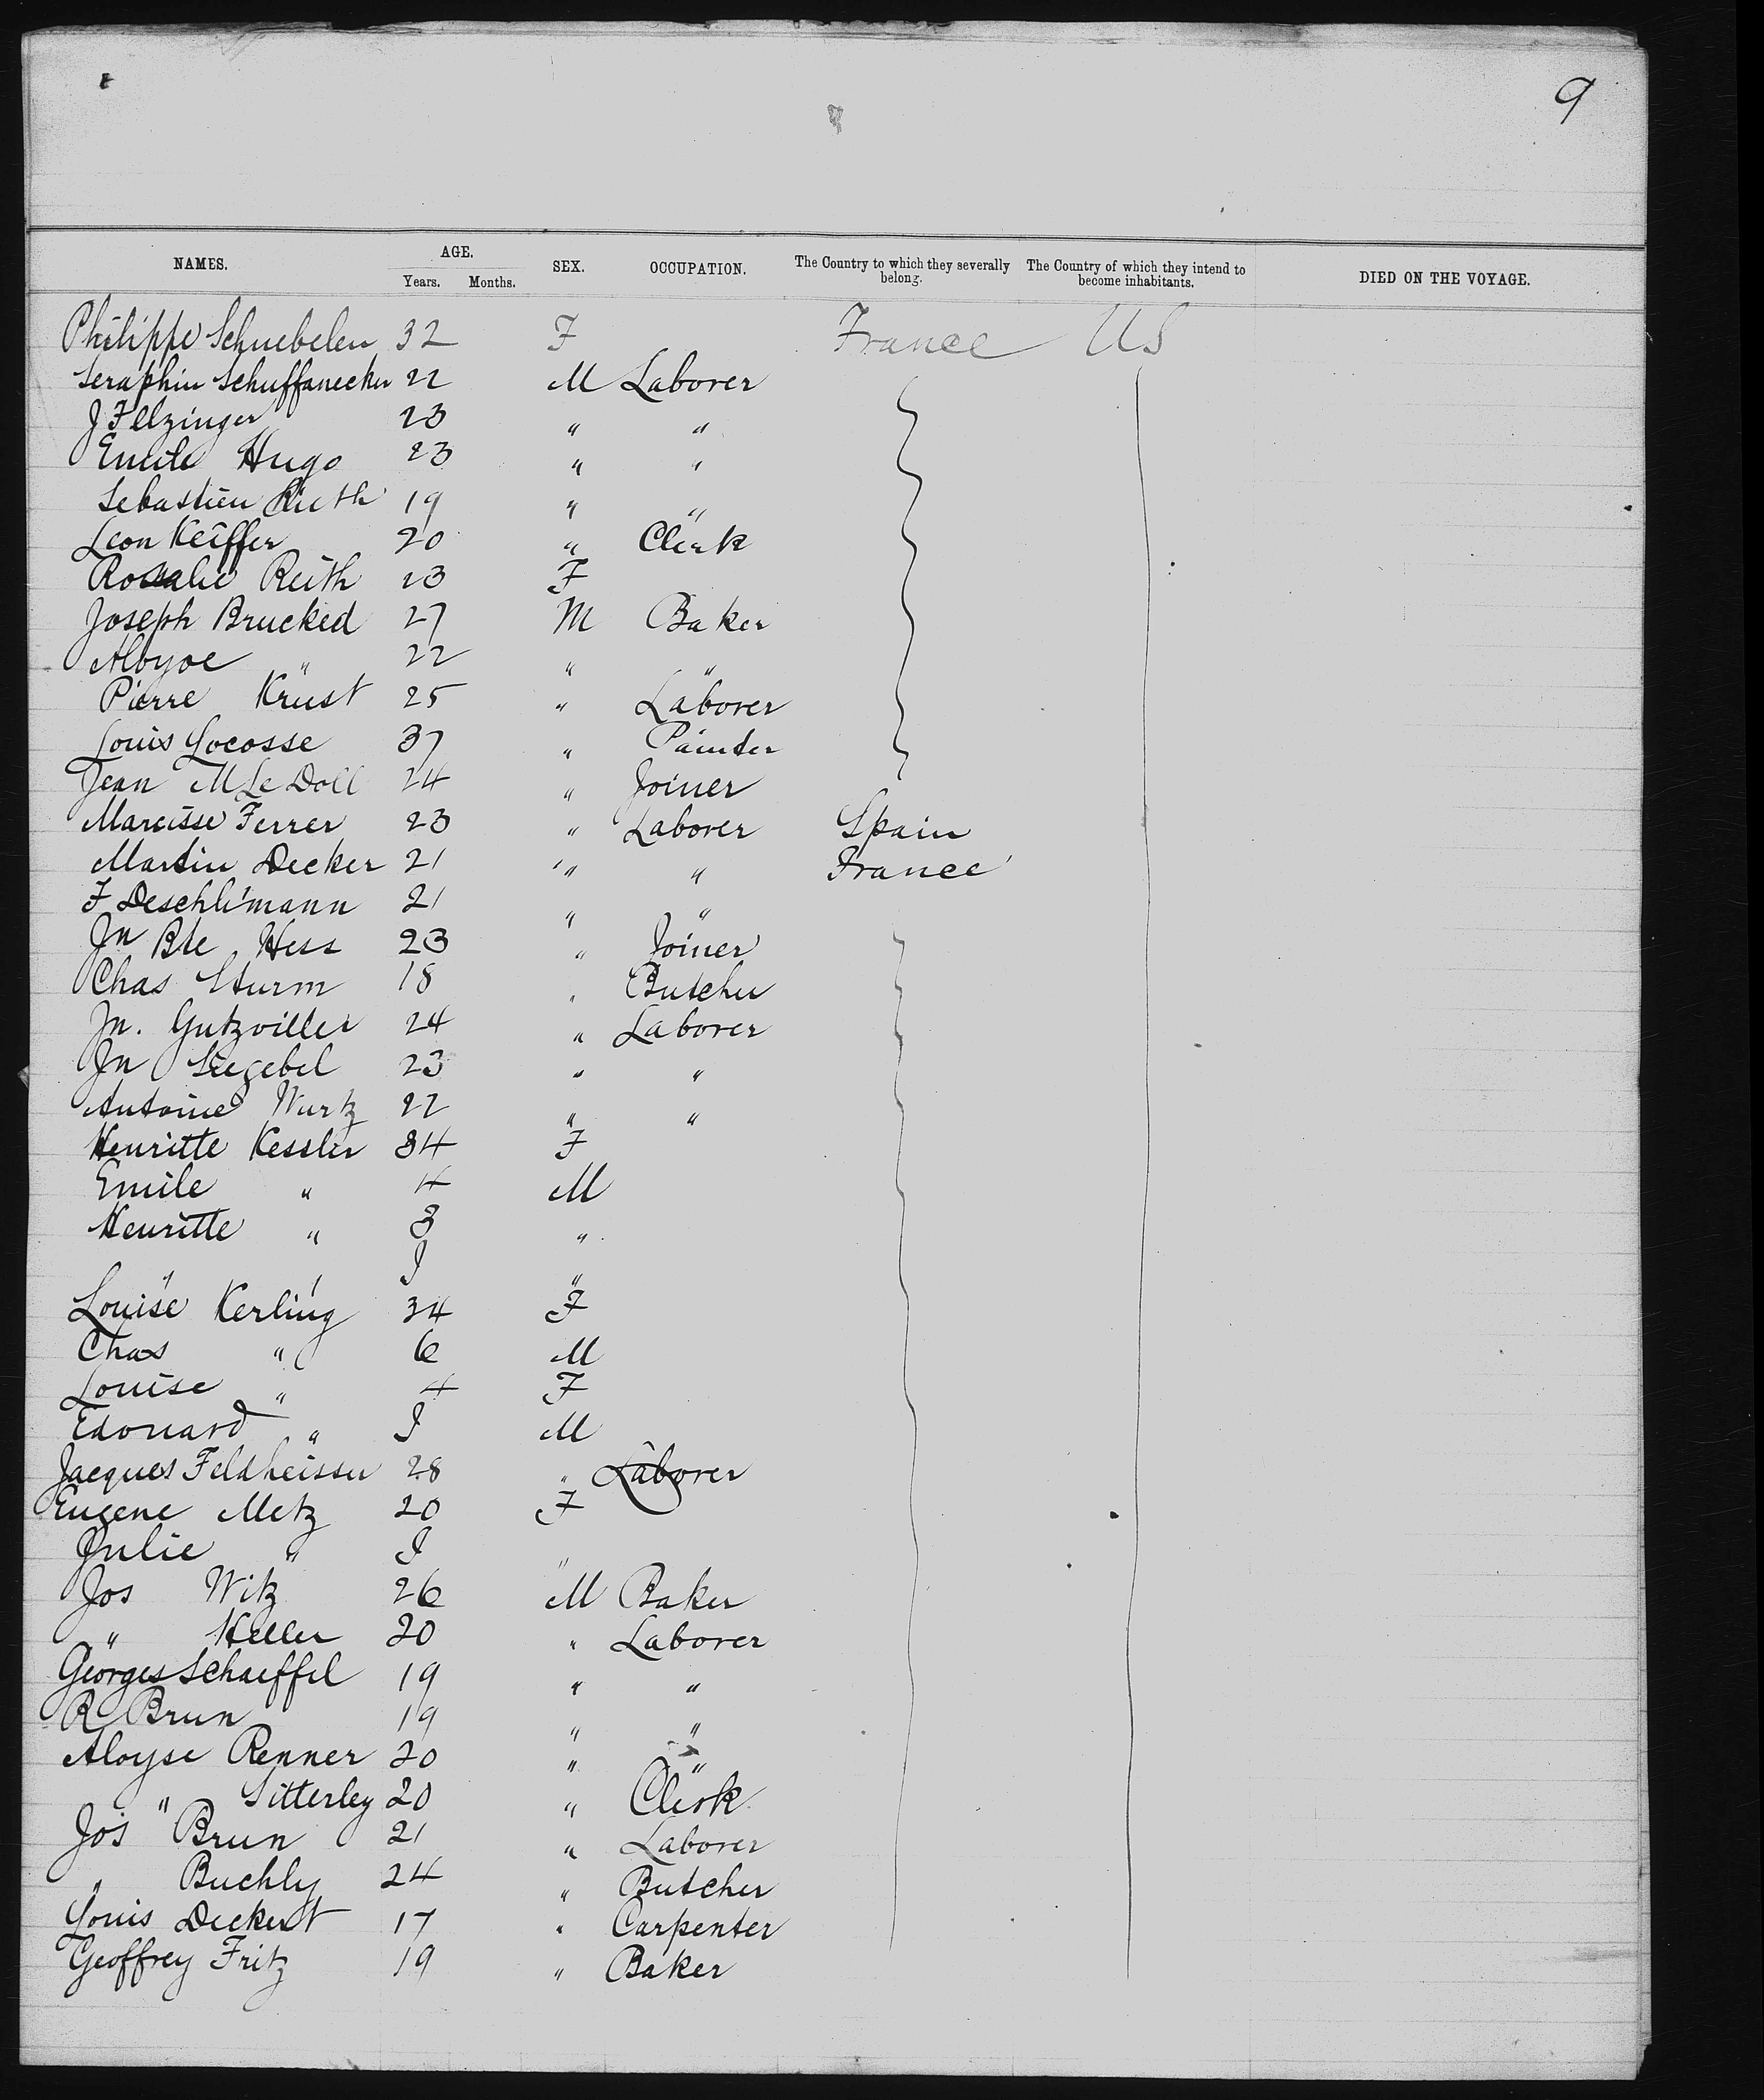 9
NAMES. AGE. SEX. OCCUPATION. The Country to which they severally belong. The Country of which they intend to become inhabitants. DIED ON THE VOYAGE.
Years. Months.
Philippe Schuebelen 32 F France US
Seraphin Schuffanecker 22 M Laborer
J Felzinger 23 " "
Emile Hugo 23 " "
Sebastien Rieth 19 " "
Leon Keiffer 20 " Clerk
Rosalie Reith 23 F
Joseph Brucked 27 M Baker
Aloyse " 22 " "
Pierre Krust 25 " Laborer
Louis Locosse 37 " Painter
Jean M Le Doll 24 " Joiner
Marcisse Ferrer 23 " Laborer Spain
Martin Decker 21 " " France
F Deschlimann 21 " "
Jn Bte Hess 23 " Joiner
Chas Sturm 18 " Butcher
Jn. Gutzviller 24 " Laborer
Jn Siegebel 23 " "
Antoine Wurtz 22 " "
Henritte Kessler 34 F
Emile " 4 M
Henritte " 3 "
" " I "
Louise Kerling 34 F
Chas " 6 M
Louise " 4 F
Edouard " I M
Jacques Feldheisser 28 " Laborer
Eugene Metz 20 F
Julie " I "
Jos Witz 26 M Baker
" Keller 20 " Laborer
Georges Schaeffel 19 " "
R Brun 19 " "
Aloyse Renner 20 " "
" Sitterley 20 " Clerk
Jos Brun 21 " Laborer
" Buchly 24 " Butcher
Louis Deckert 17 " Carpenter
Geoffrey Fritz 19 " Baker